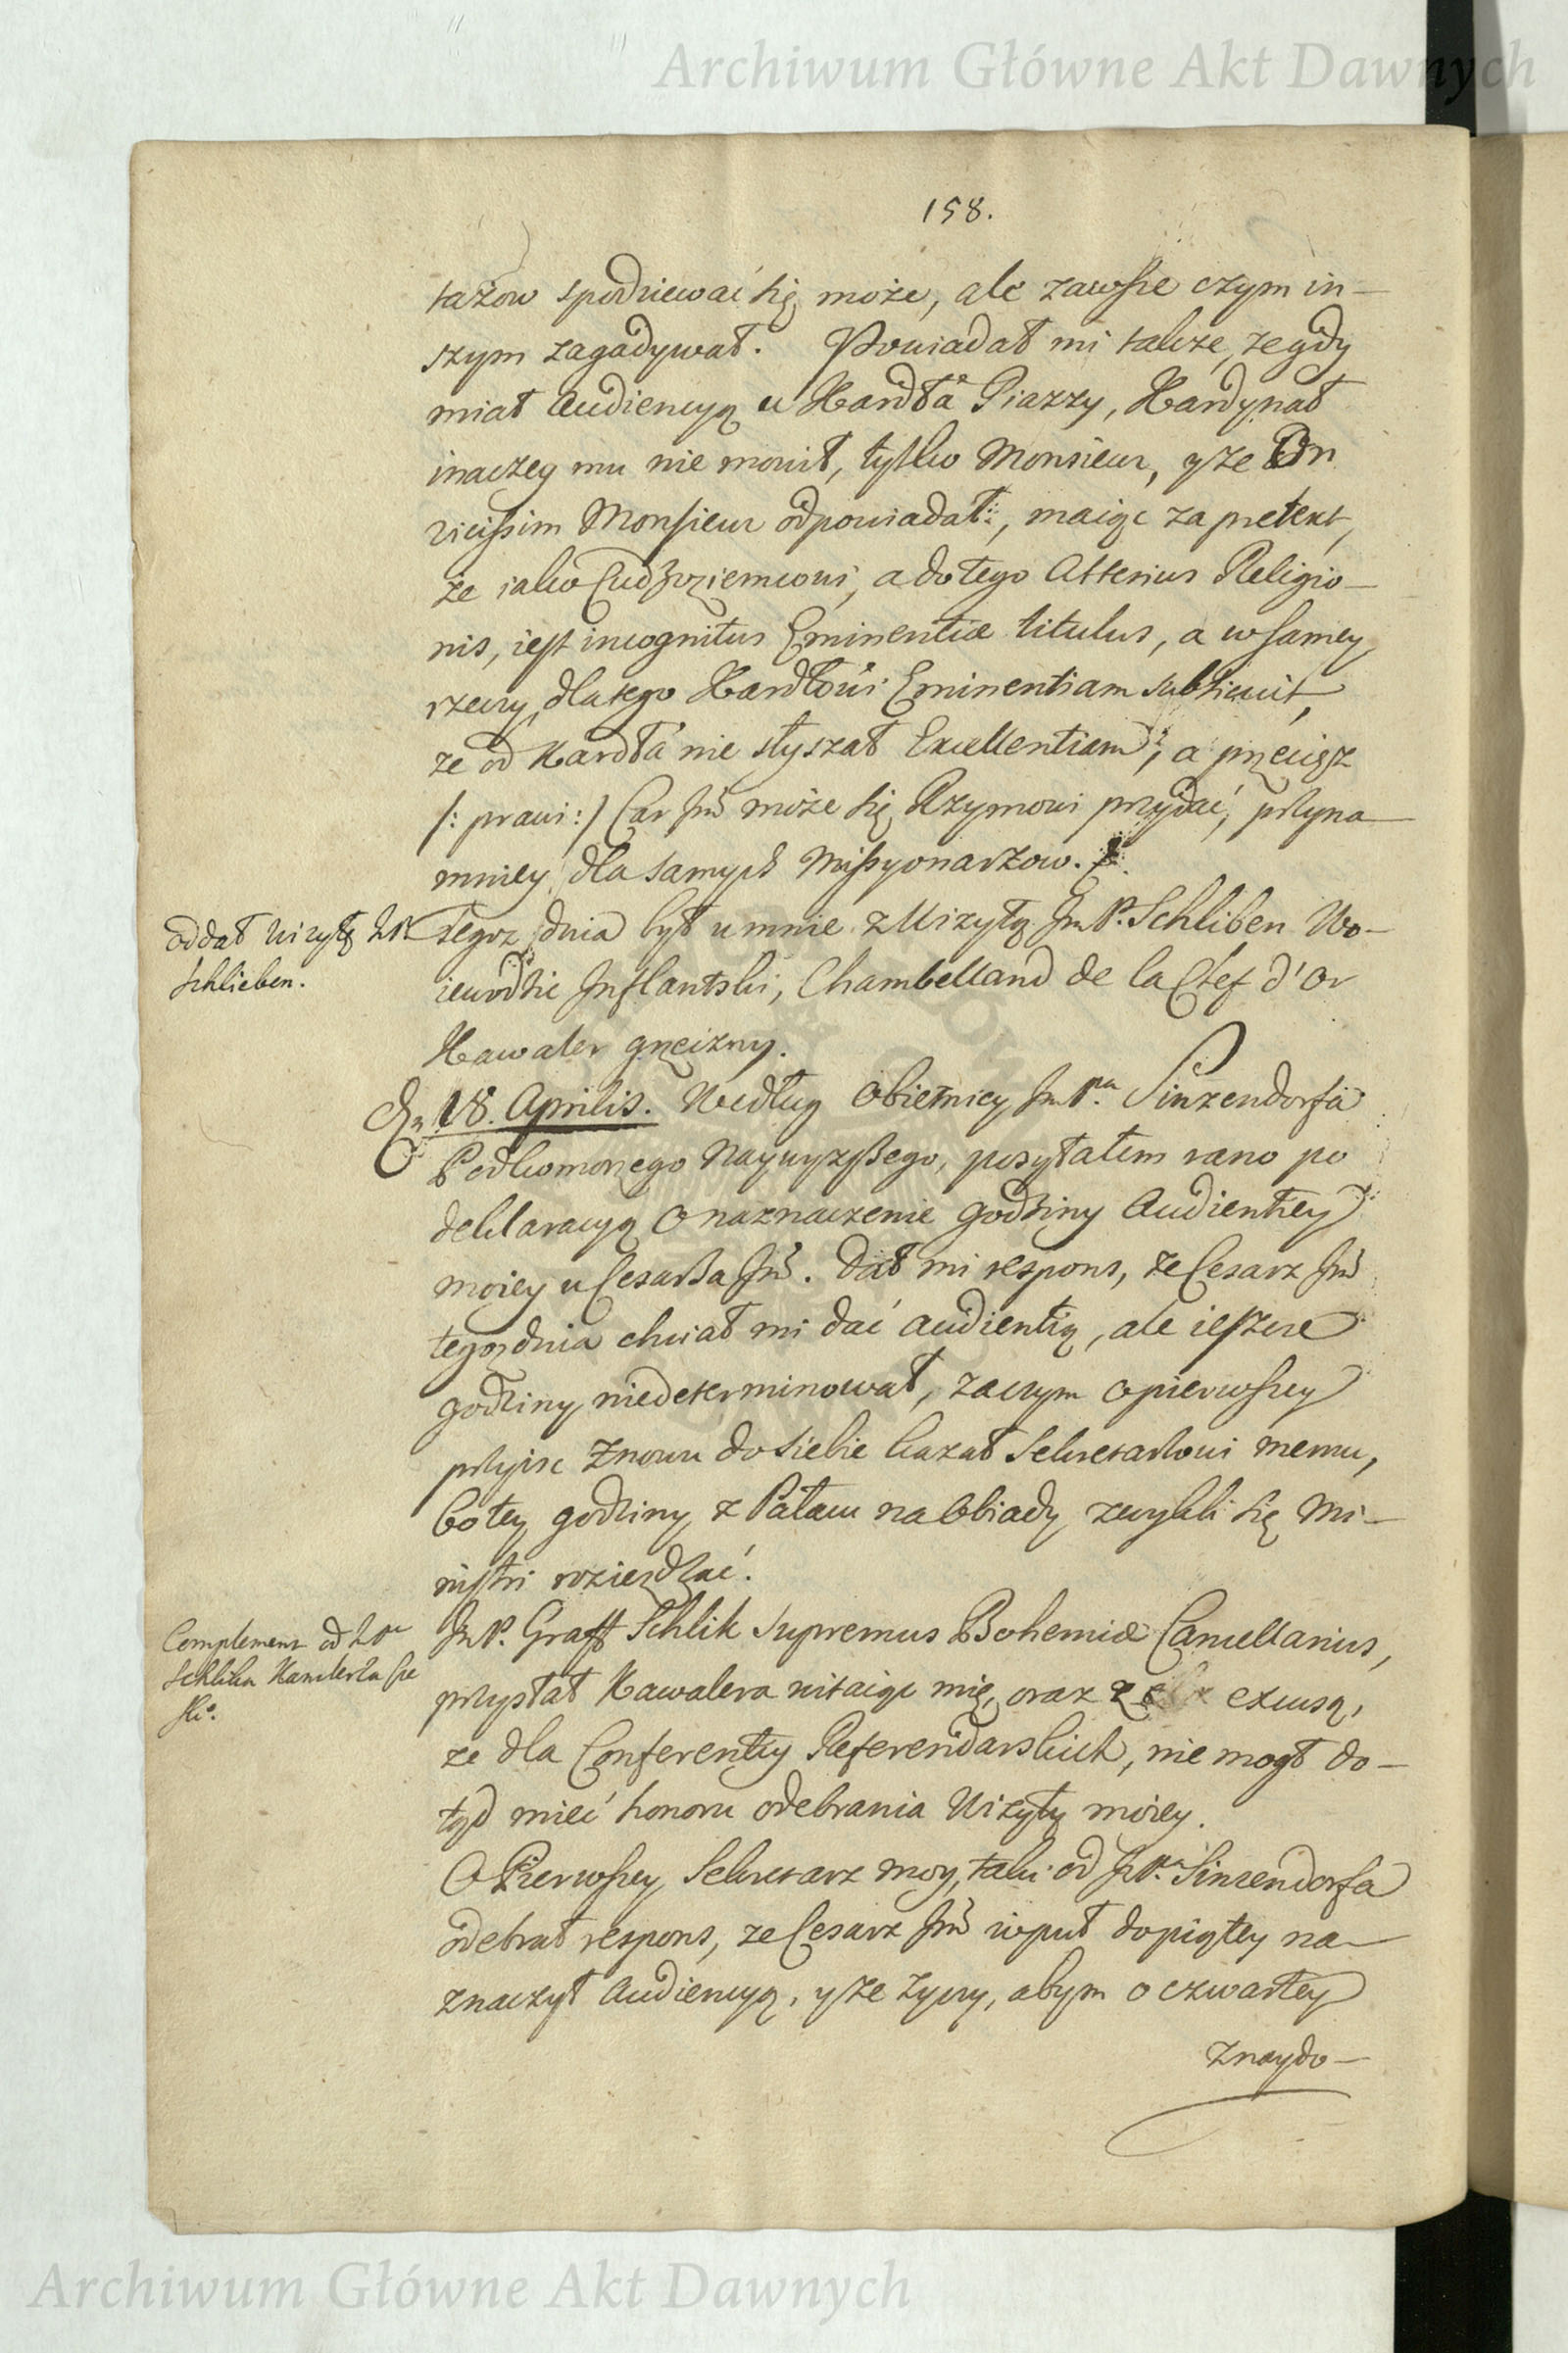 Archiwum Główne Akt Dawnych
158.
tazow spodziewać się może, ale zawsze czym in-
szym zagadywał. Powiadał mi także, ze gdy
miał Audiencyą u Kardła Piazzy, Kardynał
inaczey mu nie mowił, tylko Monsieur, y ze On
vicissim Monsieur odpowiadał, maiąc za pretext,
że iako Cudzoziemcowi, a do tego Alterius Religio-
nis, iest incognitus Eminentiæ titulus, a w samey
rzeczy, dla tego Kardłowi Eminentiam subticuit,
ze od Kardła nie słyszał Excellentiam; a przecięsz
/: prawi :/ Car Jmć może się Rzymowi przydać, przyna
mniey dla samych Missyonarzow.
oddał wizytę JP.
Schlieben.
Tegoz dnia był u mnie z Wizytą JmP. Schliben Wo-
iewodzic Inflantski, Chambelland de la Clef d'Or
Kawaler grzeczny.
Dn. 18. Aprilis. Według Obietnicy JmPna Sinzendorfa
Podkomorzego Naywyzszego, posyłałem rano po
deklaracyą o naznaczenie godziny Audientiey
moiey u Cesarza Jmć. Dał mi respons, ze Cesarz Jmć
tegoz dnia chciał mi dać audientią, ale ieszcze
godziny niedeterminował, zaczym o pierwszey
przyisc znowu do siebie kazał Sekretarzowi memu,
bo tey godziny z Pałacu na Obiady zwykli się Mi-
nistri rozieżdzać.
Complement od JPna
Schlika Kanclerza Cze
skie.
JmP. Graff Schlik Supremus Bohemiæ Cancellarius,
przysłał Kawalera witaiąc mię, oraz z excusą,
ze dla Conferentiy Referendarskich, nie mogł do-
tyd mieć honoru odebrania Wizyty moiey.
O Pierwszey Sekretarz moy, taki od JmPna Sinzendorfa
odebrał respons, ze Cesarz Jmć wpuł do piątey na-
znaczył Audiencyą, y ze zyczy, abym o czwartey
znaydo-
Archiwum Główne Akt Dawnych